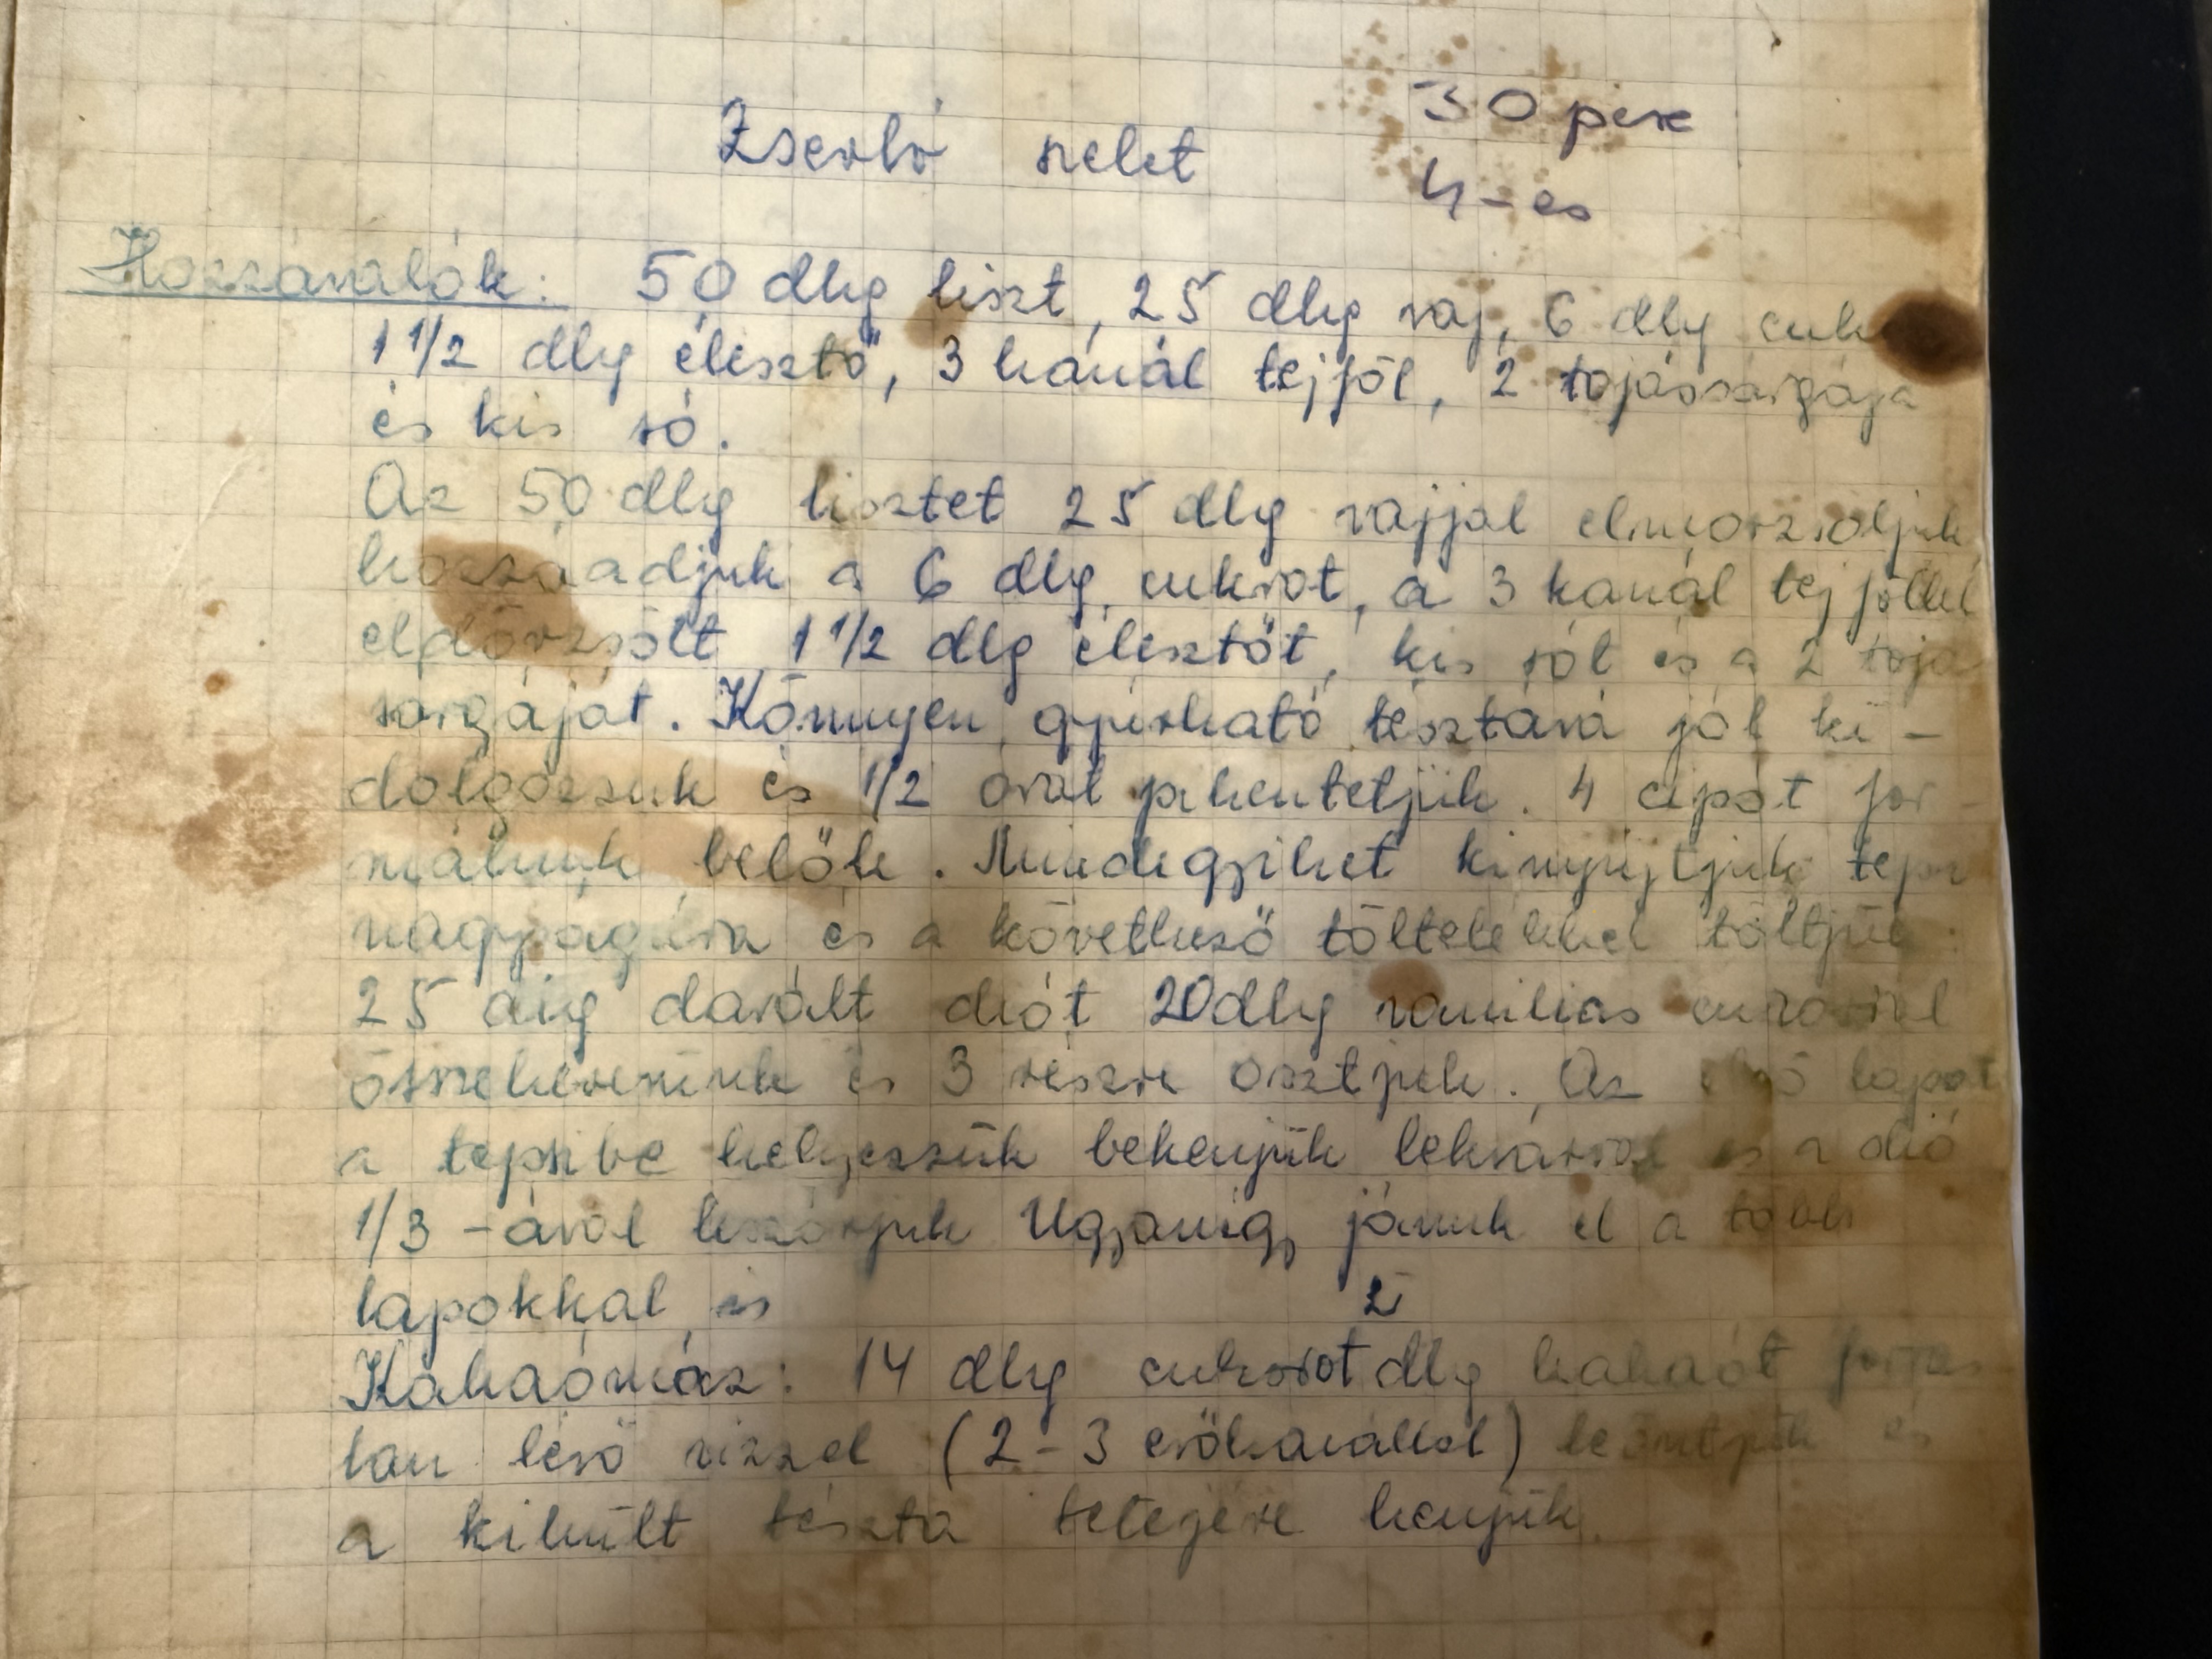 Zserbó szelet
30 perc
4-es
Hozzávalók: 50 dkg liszt, 25 dkg vaj, 6 dkg
1 1/2 dkg élesztő, 3 kanál tejföl, 2 tojássárgája
és kis só.
Az 50 dkg lisztet 25 dkg vajjal elmorzsoljuk,
hozzáadjuk a 6 dkg cukrot, a 3 kanál tejföllel
eldörzsölt 1 1/2 dkg élesztőt, kis sót és a 2
sárgáját. Könnyen gyúrható tésztává jól ki-
dolgozzuk és 1/2 órát pihentetjük. 4 cipót for-
málunk belőle. Mindegyiket kinyújtjuk
nagyságúra és a következő töltelékkel töltjük:
25 dkg darált diót 20 dkg vaniliás cukorral
összekeverünk és 3 részre osztjuk. Az első lapot
a tepsibe helyezzük bekenjük lekvárral és a dió
1/3-ával leszórjuk Ugyanígy járunk el a többi
lapokkal is
2
Kakaómáz: 14 dkg cukorot dkg kakaót
lévő vízzel (2-3 evőkanállal) leöntjük és
a kihűlt tészta tetejére kenjük.